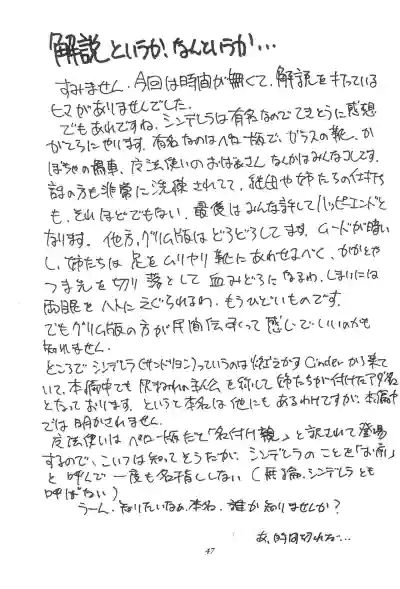 解説というか、なんというか…
すみません。今回は時間が無くて、解説を打っている
ヒマがありませんでした。
でもあれですね、シンデレラは有名なのでてきとうに感想
がてらにやります。有名なのはペロー版で、ガラスの靴、か
ぼちゃの馬車、魔法使いのおばあさんなんかはみんなコレです。
話の方も非常に洗練されてて、継母や姉たちの仕打ち
も、それほどでもない。最後はみんな許してハッピーエンドと
なります。他方、グリム版はどろどろしてます。ムードが暗い
し、姉たちは足をムリヤリ靴にあわせるべく、かかとや
つま先を切り落として血みどろになるわ、しまいには
両眼をハトにえぐられるわ、もうひどいものです。
でもグリム版の方が民間伝承って感じでいいのかも
知れません。
ところでシンデレラ(サンドリヨン)っていうのは燃えかすCinderから来て
いて、本編中でも灰まみれの を称して姉たちが付けたアダ名
となっております。というと本名は他にもあるわけですが、本編中
では明かされません。
魔法使いはペロー版だと「名付け親」と訳されて登場
するので、こいつは知ってそうだが、シンデレラのことを「お前」
と呼んで一度も名指ししない(無論、シンデレラとも
呼ばない)
うーん、知りたいなぁ、本名。誰か知りませんか?
あ、時間切れだ…
47